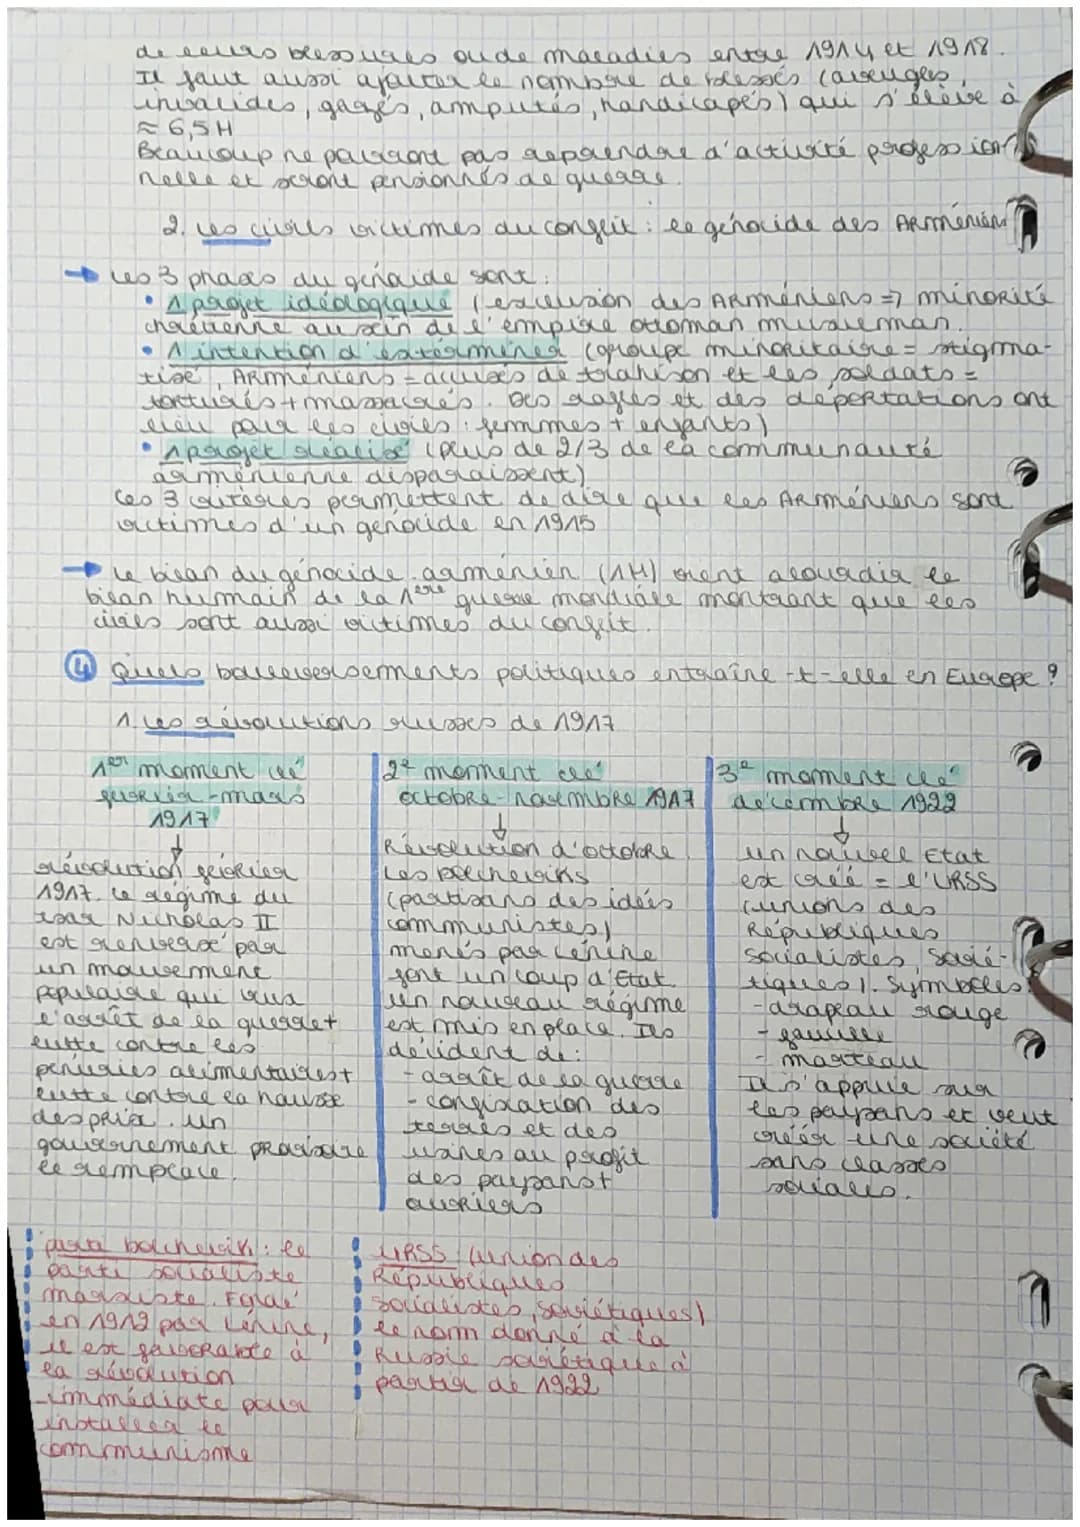 de leurs blessures ou de maladies entre 1914 et 1918.
Il faut aussi ajouter le nombre de blessés (aveugles,
invalides, gazés, amputés, handicapés) qui s'élève à
≈ 6,5M
Beaucoup ne pourront pas reprendre d'activité profession
nelle et seront pensionnés de guerre.
2. Les civils victimes du conflit : le génocide des Arméniens
→ Les 3 phases du génocide sont :
• 1 projet idéologique (exclusion des Arméniens => minorité
chrétienne au sein de l'empire ottoman musulman.
• 1 intention d'exterminer (groupe minoritaire = stigma-
tisé, Arméniens = accusés de trahison et les soldats =
torturés + massacrés. Des rafles et des déportations ont
lieu pour les civils : femmes + enfants)
• 1 projet réalisé (plus de 2/3 de la communauté
arménienne disparaissent)
Ces 3 critères permettent de dire que les Arméniens sont
victimes d'un génocide en 1915
→ Le bilan du génocide arménien (1M) vient alourdir le
bilan humain de la 1ère guerre mondiale montrant que les
civils sont aussi victimes du conflit.
4 Quels bouleversements politiques entraîne-t-elle en Europe ?
1. Les révolutions russes de 1917
1er moment clé
février-mars
1917
↓
révolution février
1917. Le régime du
tsar Nicholas II
est renversé par
un mouvement
populaire qui veut
l'arrêt de la guerre +
lutte contre les
pénuries alimentaires +
lutte contre la hausse
des prix. Un
gouvernement provisoire
le remplace.
2e moment clé
octobre-novembre 1917
↓
Révolution d'octobre
Les bolcheviks
(partisans des idées
communistes)
menés par Lénine
font un coup d'Etat
un nouveau régime
est mis en place. Ils
décident de :
- arrêt de la guerre
- confixation des
terres et des
usines au profit
des paysans +
ouvriers
3e moment clé
décembre 1922
↓
un nouvel Etat
est créé = l'URSS
(unions des
Républiques
Socialistes Sovié-
tiques). Symboles :
- drapeau rouge
- faucille
- marteau
Il s'appuie sur
les paysans et veut
créer une société
sans classes
sociales.
parti bolchevik : le
parti socialiste
marxiste. Fondé
en 1912 par Lénine,
il est favorable à
la révolution
immédiate pour
installer le
communisme
URSS (union des
Républiques
Socialistes Soviétiques)
le nom donné à la
Russie soviétique à
partir de 1922